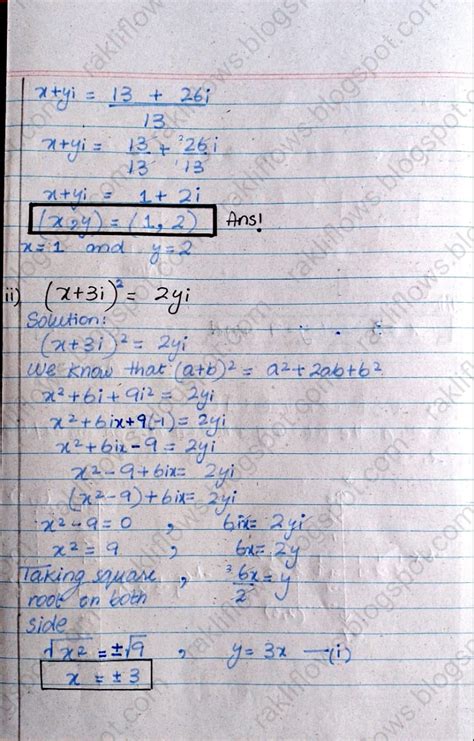 x+yi = 13 + 26i
13
x+yi = 13 + ²26 i
13 13
x+yi = 1 + 2i
(x,y) = (1, 2) Ans!
x=1 and y=2
ii) (x+3i)² = 2yi
Solution:
(x+3i)² = 2yi
We know that (a+b)² = a²+2ab+b²
x²+6i+9i² = 2yi
x²+6ix+9(-1) = 2yi
x²+6ix-9 = 2yi
x²-9+6ix= 2yi
(x²-9)+6ix= 2yi
x²-9=0 , 6ix= 2yi
x² = 9 , 6x= 2y
Taking square , ³6x = y
root on both 2
side
√x² = ±√9 , y= 3x —(i)
x = ±3
rakliflows.blogspot.com